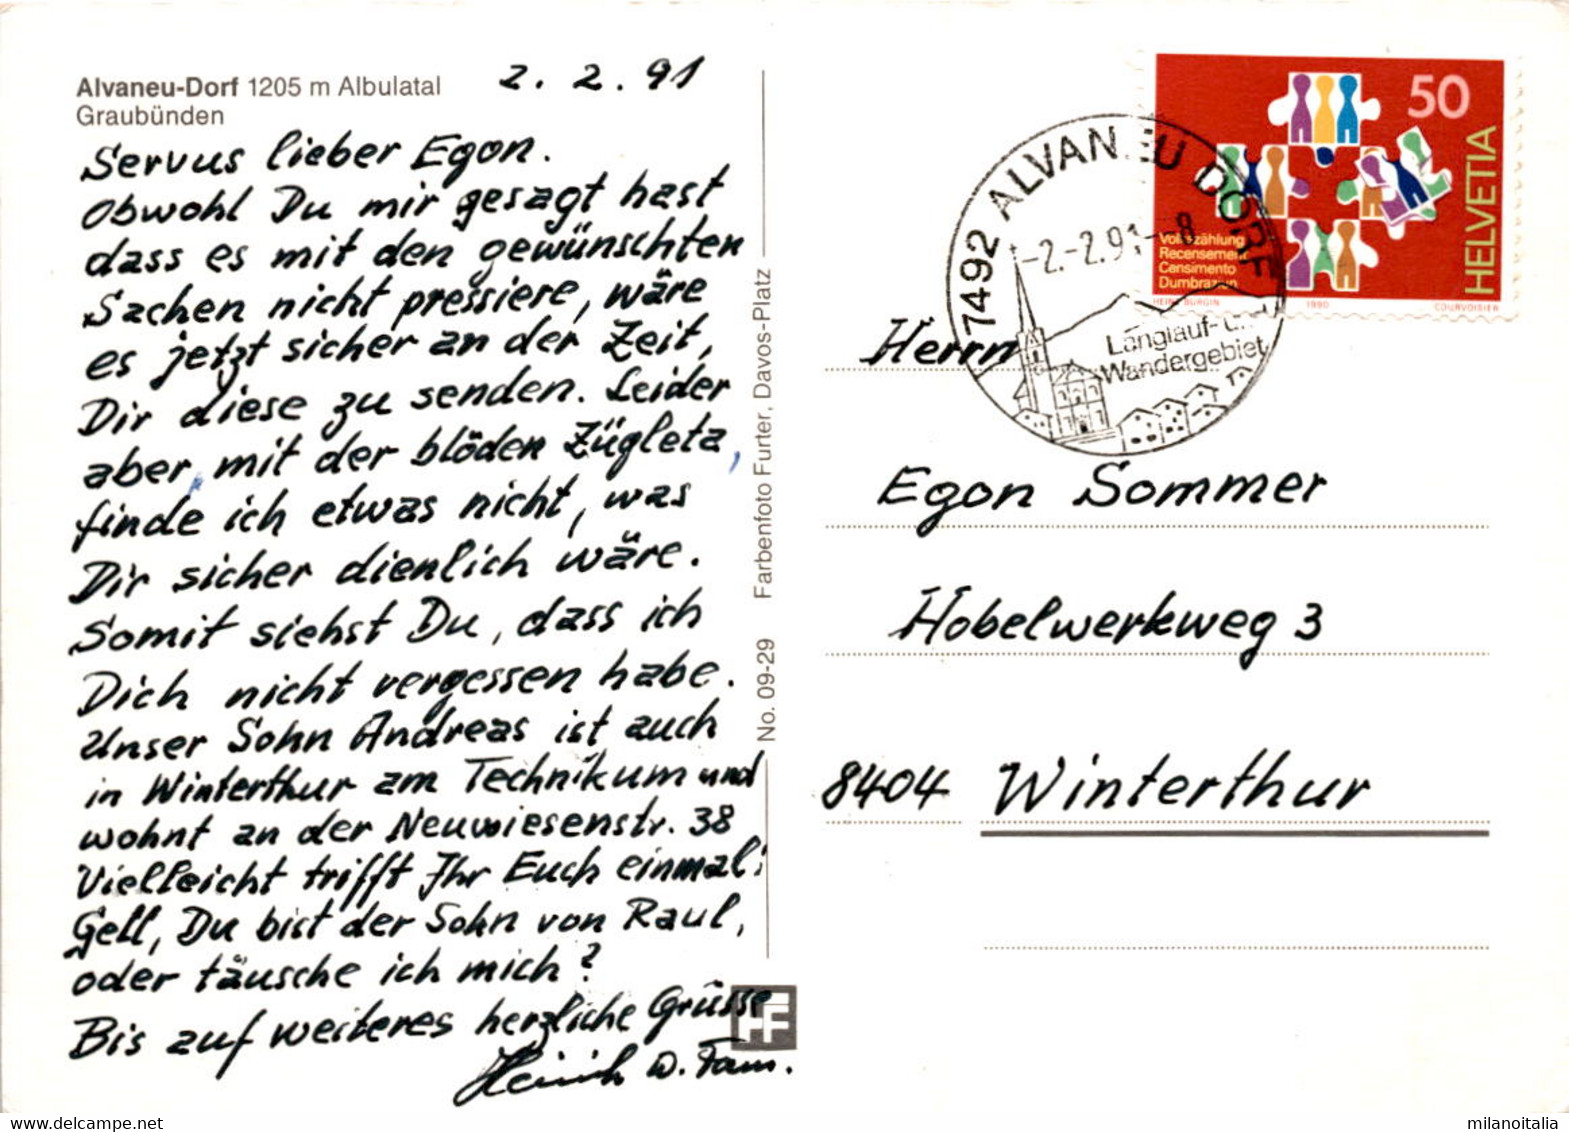 Alvaneu-Dorf 1205 m Albulatal
Graubünden
2. 2. 91
Servus lieber Egon.
Obwohl Du mir gesagt hast
dass es mit den gewünschten
Sachen nicht pressiere, wäre
es jetzt sicher an der Zeit,
Dir diese zu senden. Leider
aber, mit der blöden Zügleta,
finde ich etwas nicht, was
Dir sicher dienlich wäre.
Somit siehst Du, dass ich
Dich nicht vergessen habe.
Unser Sohn Andreas ist auch
in Winterthur am Technikum und
wohnt an der Neuwiesenstr. 38
Vielleicht trifft Ihr Euch einmal!
Gell, Du bist der Sohn von Raul,
oder täusche ich mich?
Bis auf weiteres herzliche Grüsse
Heinrich u. Fam.
No. 09-29 Farbenfoto Furter, Davos-Platz
FF
7492 ALVANEU DORF
-2.-2.91-8
Langlauf- und
Wandergebiet
50
HELVETIA
Volkszählung
Recensement
Censimento
Dumbraziun
HEINZ BÜRGIN 1990 COURVOISIER
Herrn
Egon Sommer
Hobelwerkweg 3
8404 Winterthur
milanoitalia